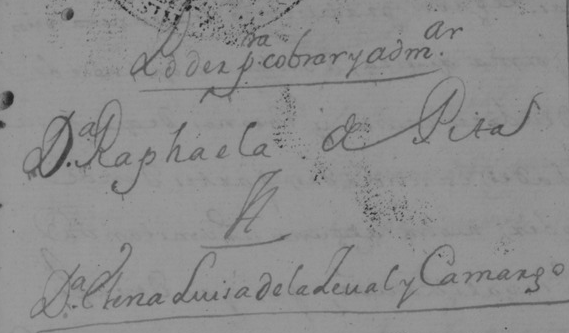 Pd dez p.ra cobrar y adm.ar
D.a Raphaela de Pitas
A
D.a Elena Luisa de la Leual y Camargo